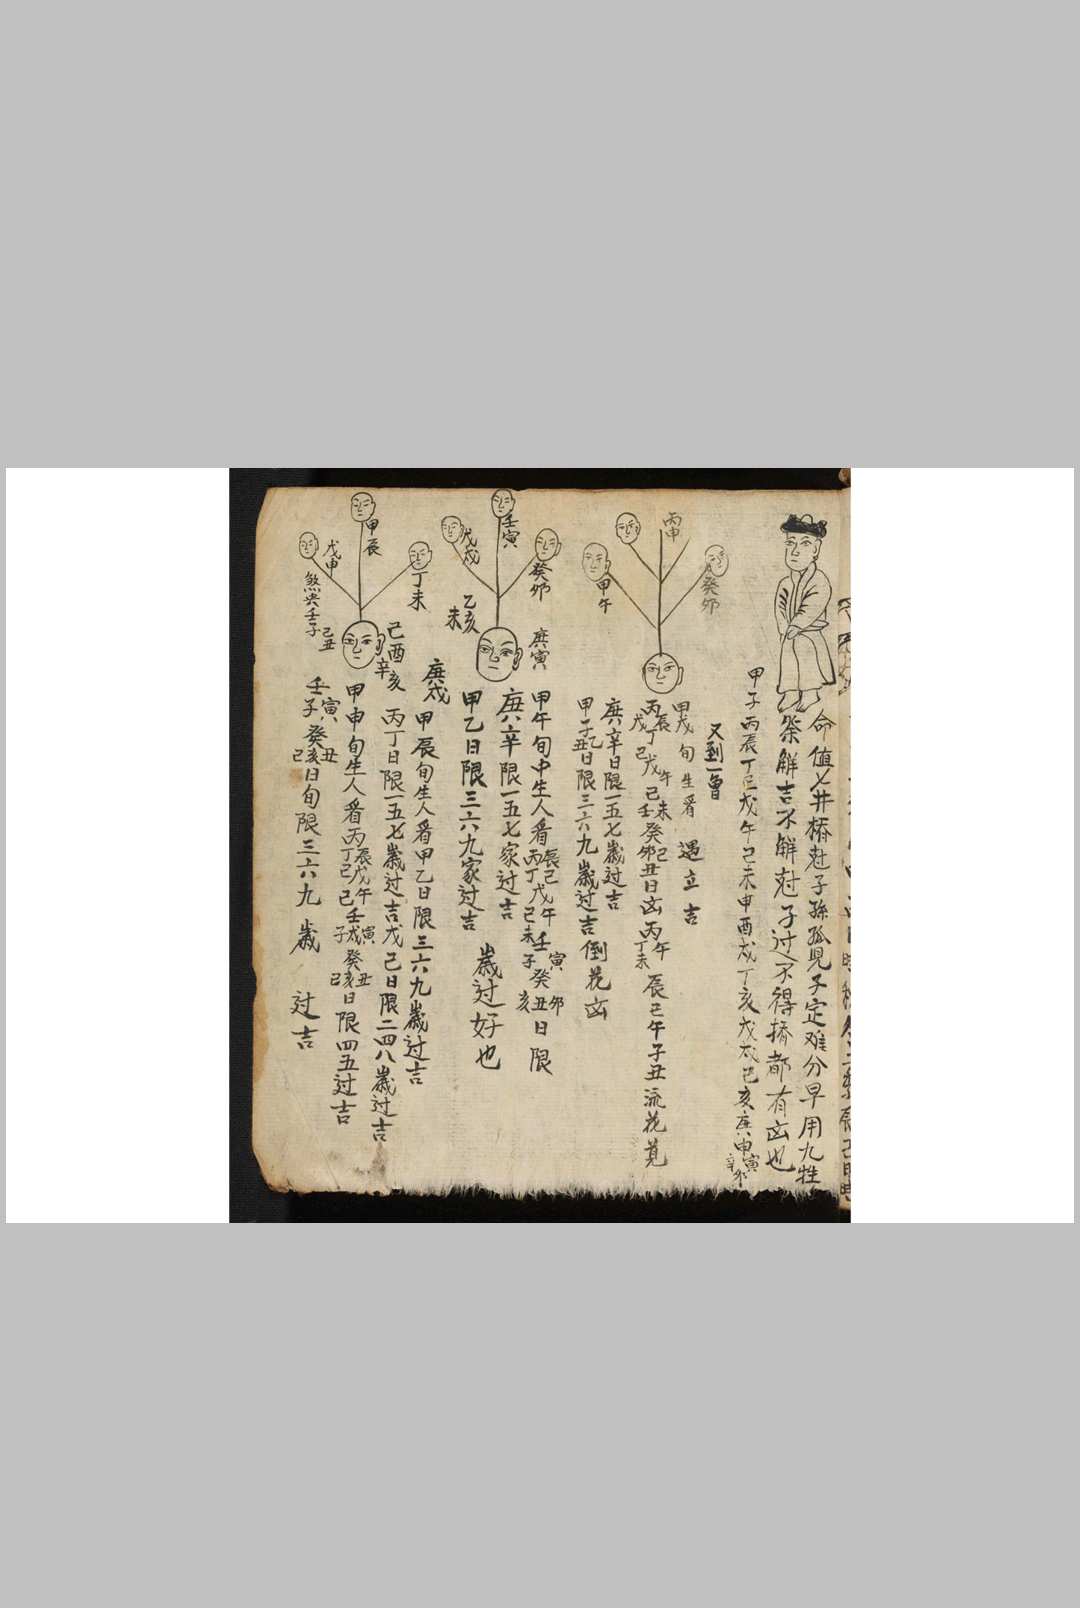 命值七井橋尅子孫孤兒子定难分早用九牲
祭解吉不解尅子过不得橋都有凶也
甲子丙辰丁巳戊午己未申酉戌丁亥戊戌己亥庚申寅辛卯
又到一會
甲戌旬生看 遇立吉
丙辰丁戊己戊午己未壬癸卯己丑日凶丙午丁未辰己午子丑流花見
庚辛日限一五七歲过吉
甲子乙丑日限三六九歲过吉倒花凶
丙申
癸卯
甲午
甲午旬中生人看丙辰丁己戊午己未壬寅子癸卯丑亥日限
庚辛限一五七家过吉
甲乙日限三六九家过吉
歲过好也
壬寅
戊戌
癸卯
乙亥
未
庚寅
庚戌
甲辰旬生人看甲乙日限三六九歲过吉
丙丁日限一五七歲过吉戊己日限二四八歲过吉
甲申旬生人看丙辰丁己戊午己壬寅子戌癸丑己亥日限四五过吉
壬寅子癸丑己亥日旬限三六九歲过吉
甲辰
戊申
丁未
煞與壬子
己丑
己酉
辛亥